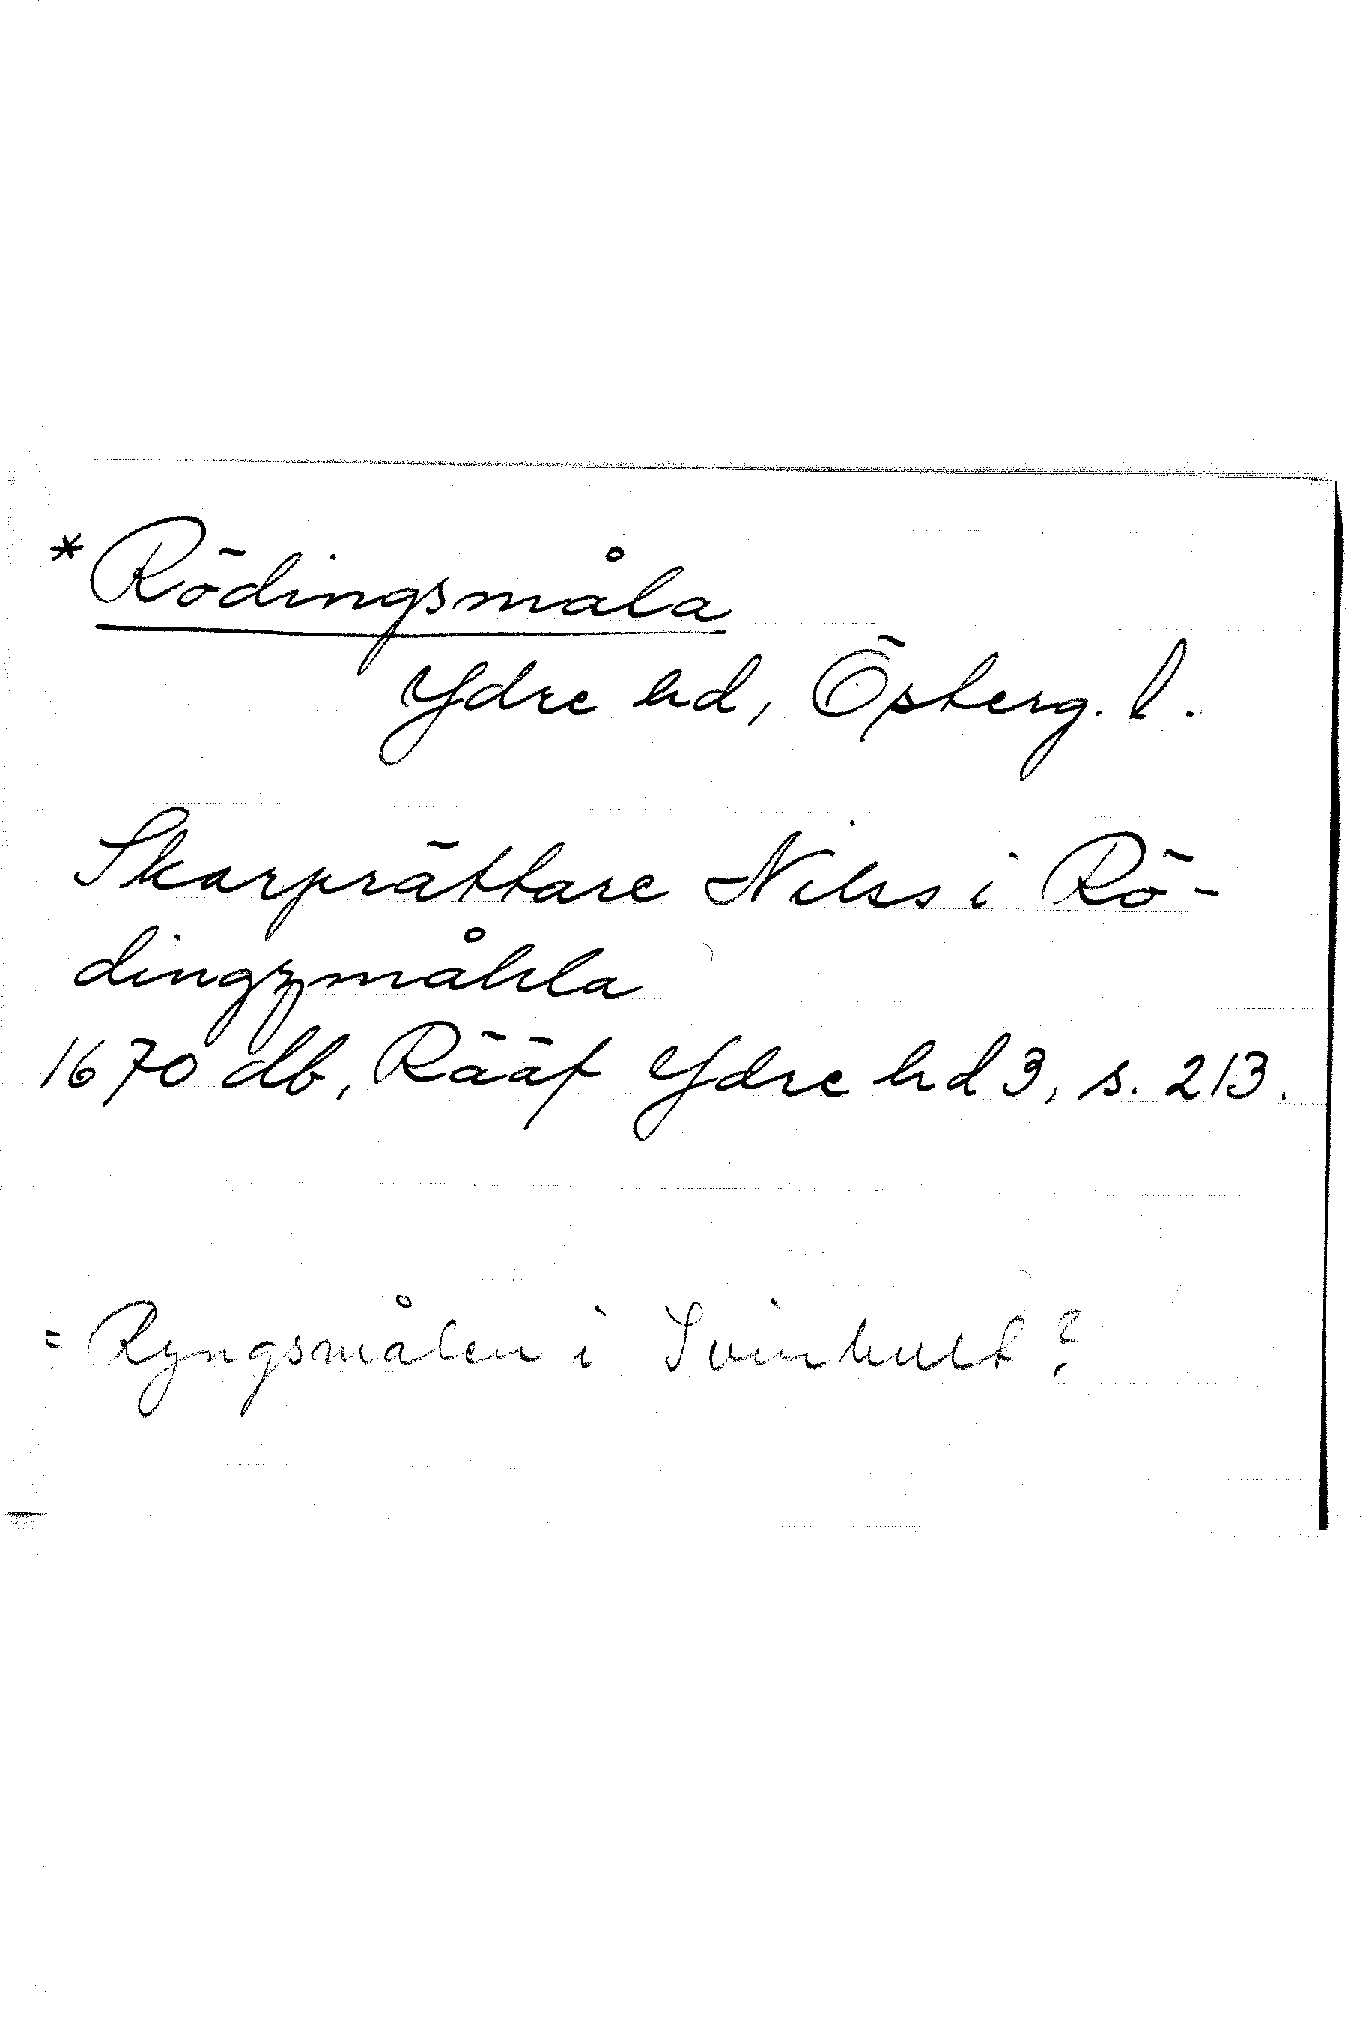 *Rödingsmåla
Ydre hd, Österg. l.
Skarprättare Nilss i Rö-
dingzmåhla
1670 db, Rääf Ydre hd 3, s. 213.
= Ryngsmålen i Svinhult?